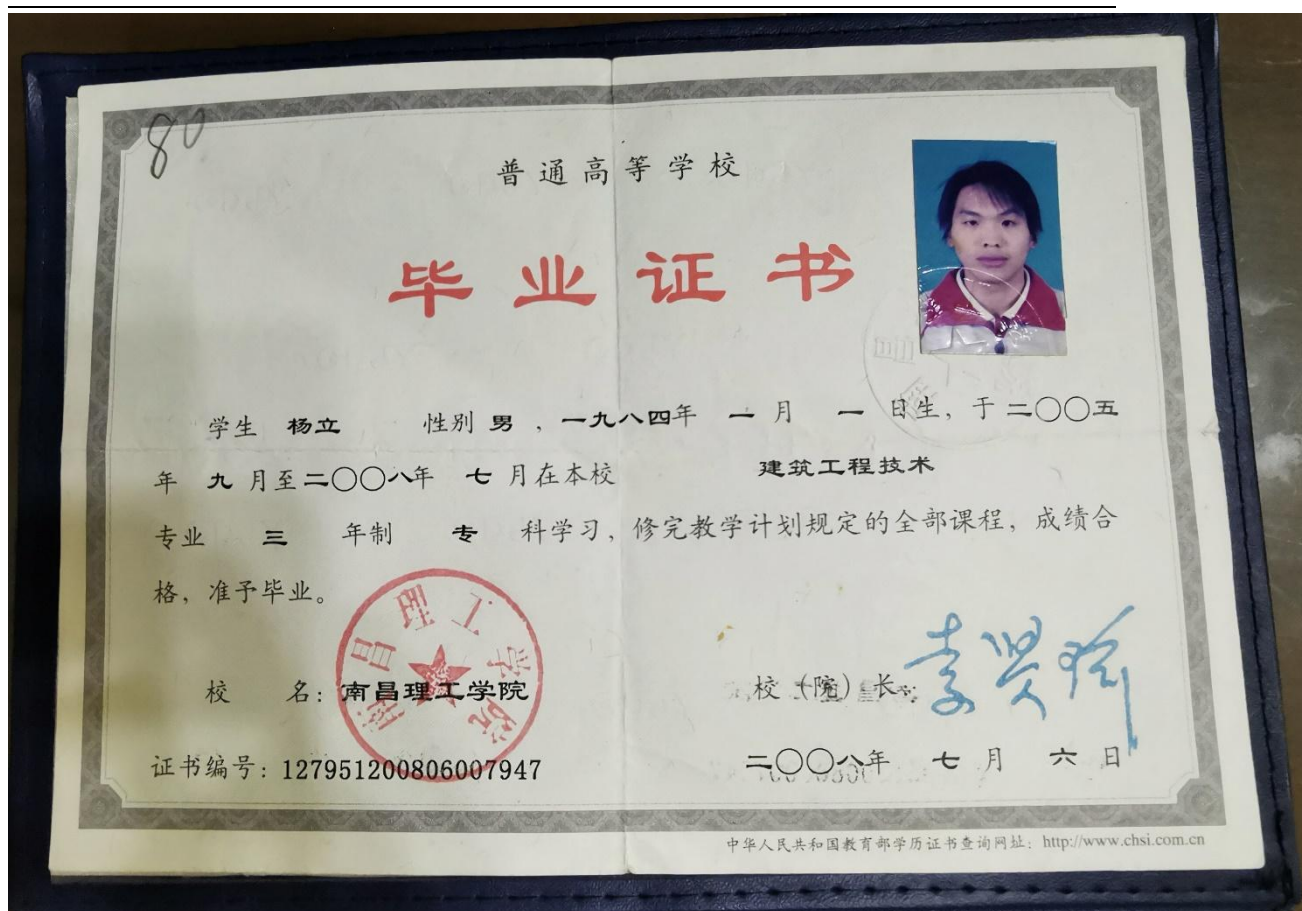 80
普通高等学校
毕业证书
学生 杨立 性别 男 ，一九八四年 一 月 一 日生，于二〇〇五
年 九 月至二〇〇八年 七 月在本校 建筑工程技术
专业 三 年制 专 科学习，修完教学计划规定的全部课程，成绩合
格，准予毕业。
南昌理工学院
校 名：南昌理工学院
校（院）长
证书编号：127951200806007947
二〇〇八年 七 月 六 日
中华人民共和国教育部学历证书查询网址：http://www.chsi.com.cn